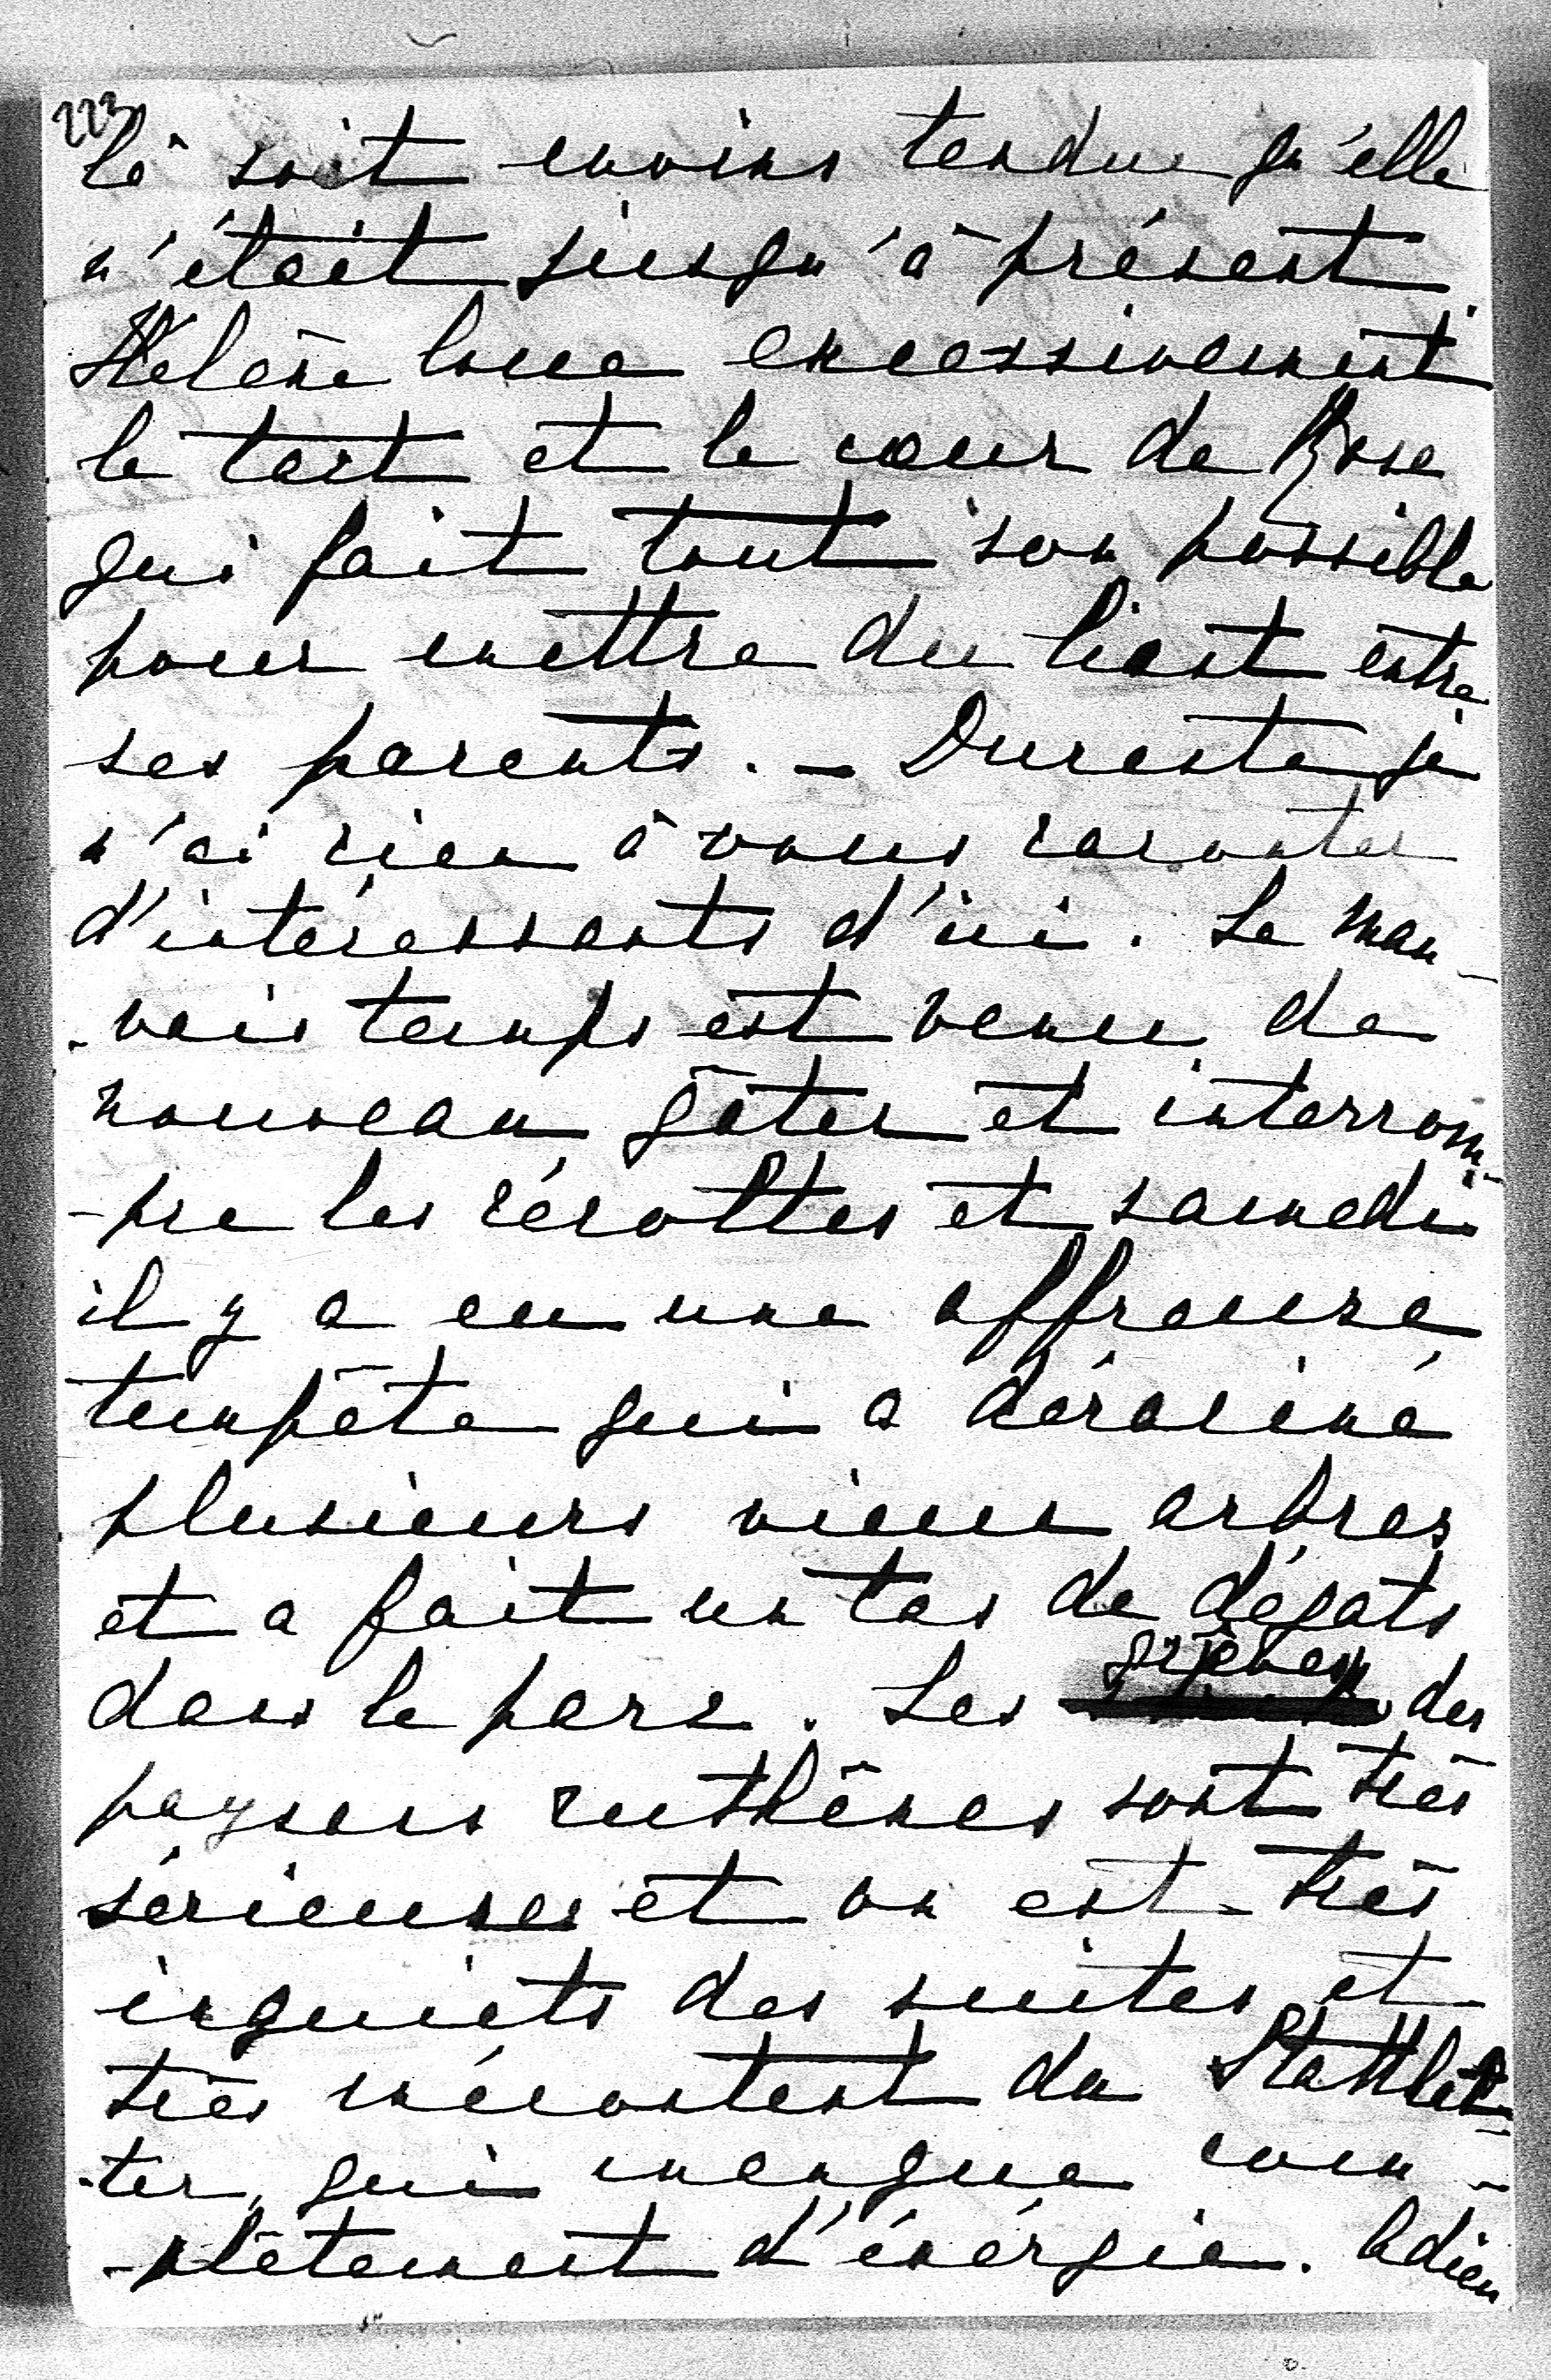 223
là soit moins tendue qu'elle
n'était jusqu'à présent.
Helène loue excessivement
le tact et le cœur de Rose
qui fait tout son possible
pour mettre du liant entre
ses parents. – Dureste je
n'ai rien à vous raconter
d'intéressants d'ici. Le mau-
-vais temps est venu de
nouveau gâter et interrom-
-pre les récoltes et samedi
il y a eu une affreuse
tempête qui a déraciné
plusieurs vieux arbres
et a fait un tas de dégats
dans le parc. Les grèves des
paysans ruthènes sont très
sérieuses et on est très
inquiets des suites et
très mécontent du Statthal-
-ter, qui manque com-
-plètement d'énérgie. Adieu